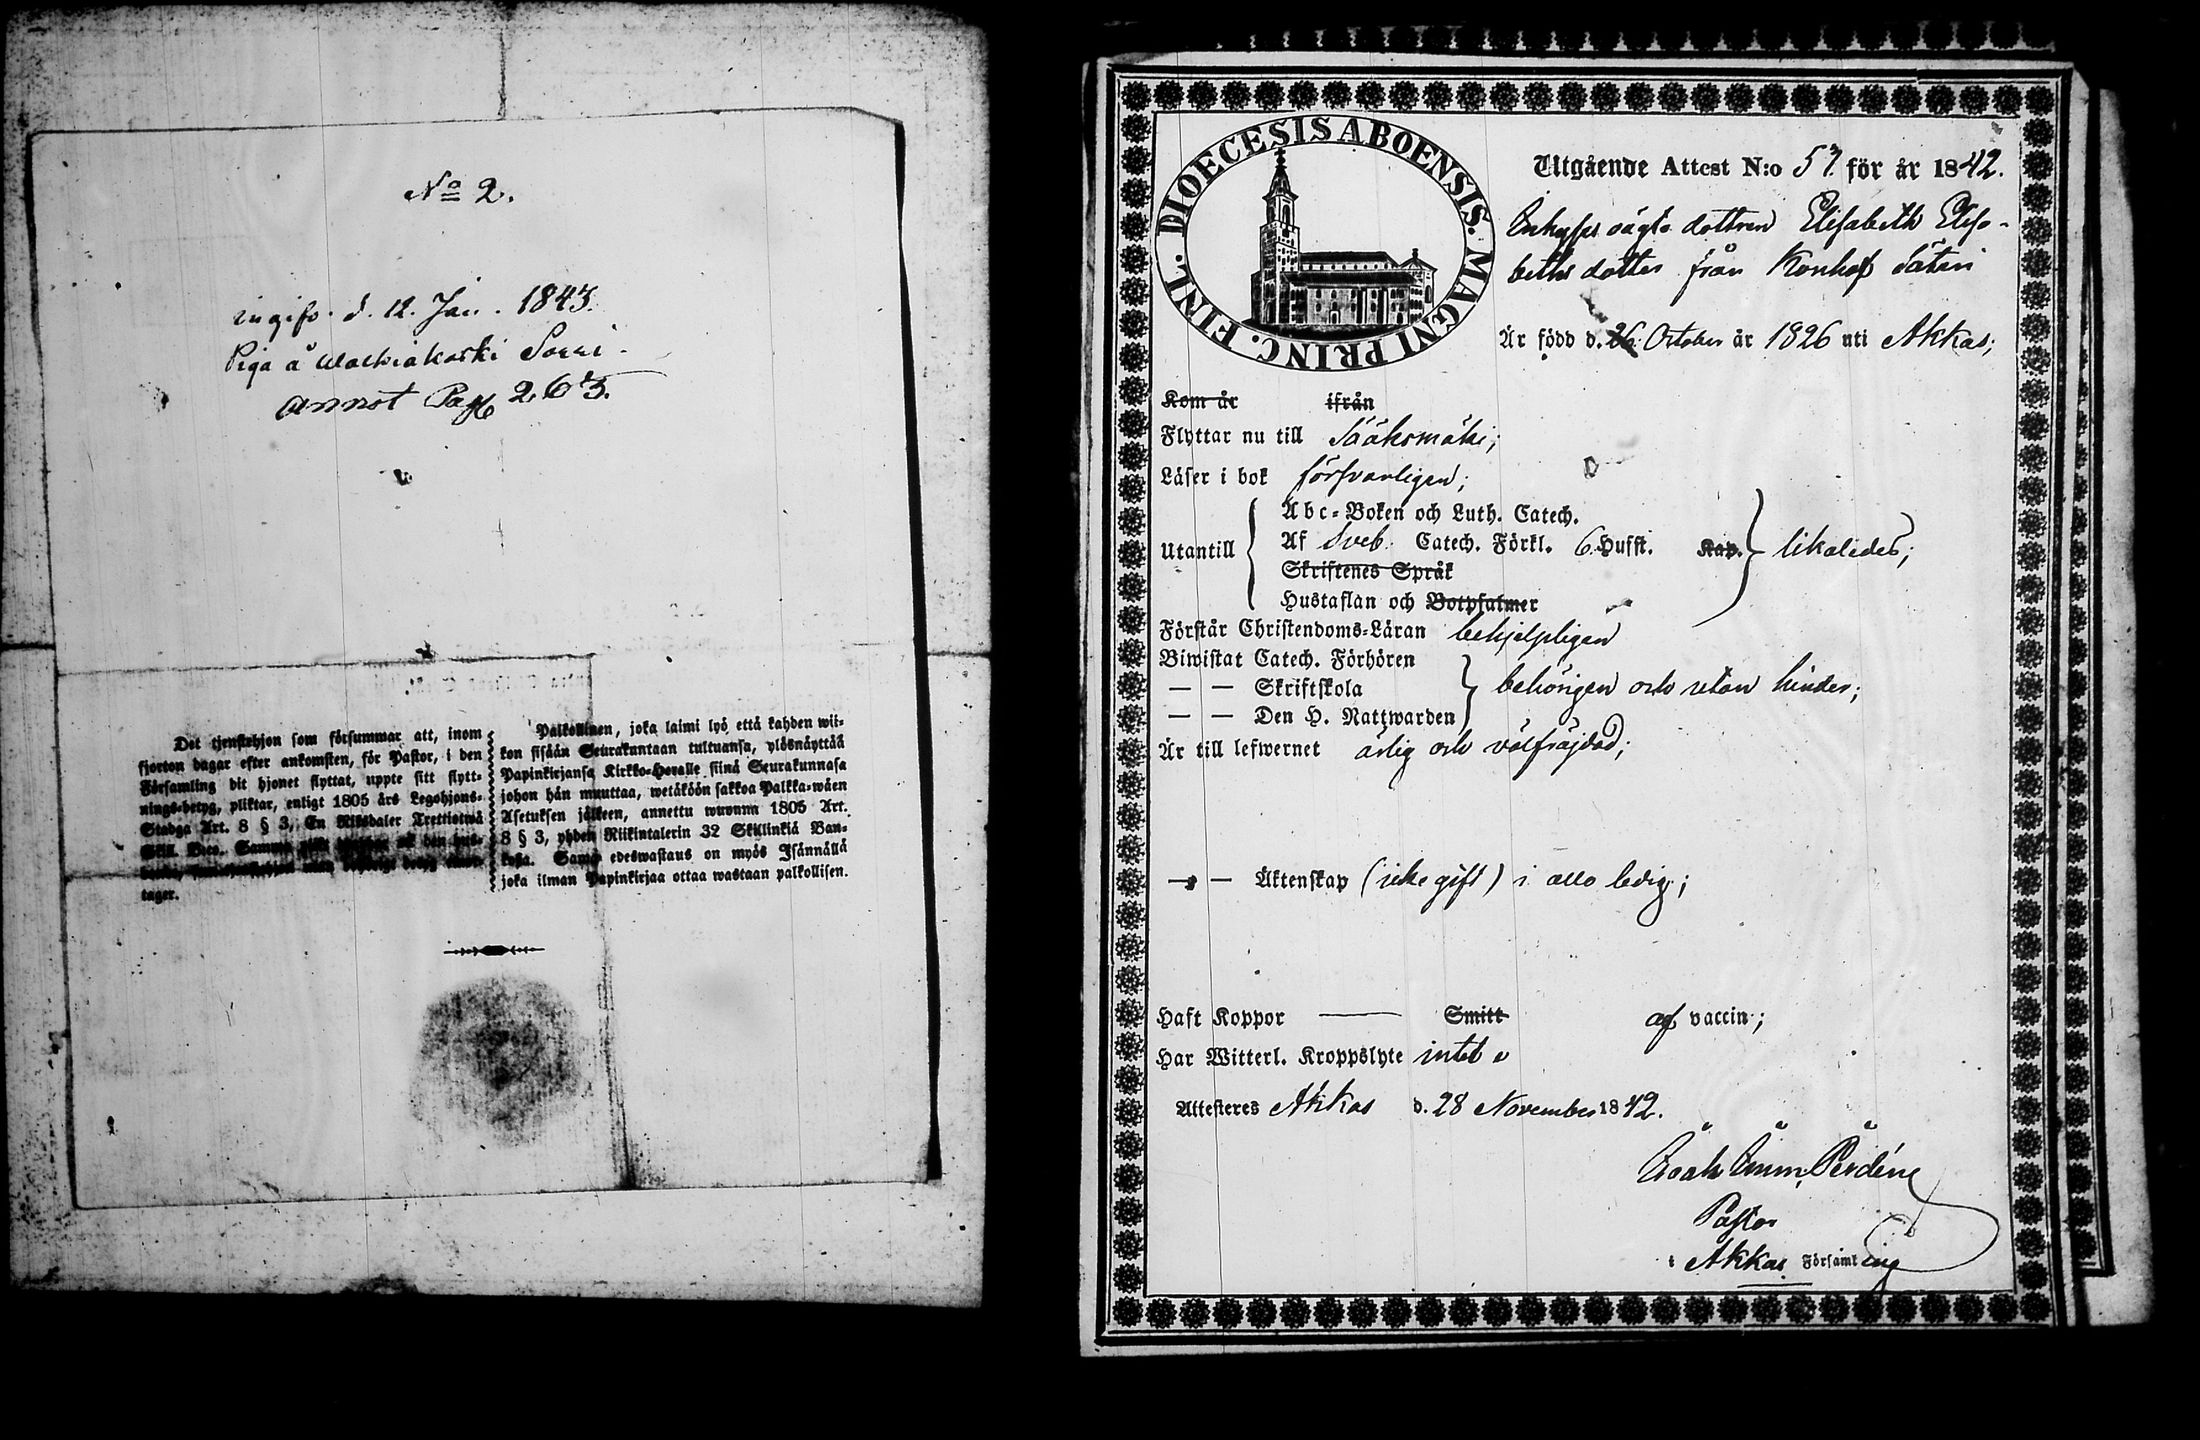 No 2.
ingifv. d. 12. Jan. 1843.
Piga å Walkiakoski Sorri.
Annot Pag 263.
Det tjenstehjon som försummar att, inom
fjorton dagar efter ankomsten, för Pastor, i den
Församling dit hjonet flyttat, uppte sitt flytt-
nings-betyg, pliktar, enligt 1805 års Legohjons-
Stadga Art. 8 § 3, En Riksdaler Trettiotwå
Skill. Bco. Samma
tager.
Palkollinen, joka laimi lyö että kahden wii-
kon sisään Seurakuntaan tultuansa, ylösnäyttää
Papinkirjansa Kirkko-Herralle siinä Seurakunnasa
johon hän muuttaa, wetäköön sakkoa Palkka-wäen
Asetuksen jälkeen, annettu wuonna 1805 Art.
8 § 3, yhden Riikintalerin 32 Skillinkiä Ban-
kosa. Sama edeswastaus on myös Isännällä
joka ilman Papinkirjaa ottaa wastaan palkollisen.
DIOECESIS ABOENSIS. MAGNI PRINC. FINL.
Utgående Attest N:o 57 för år 1842.
Inhyses oägta dottren Elisabeth Elisa-
beths dotter från Konho Säteri
Är född d. 26. October år 1826 uti Akkas;
Kom år ifrån
Flyttar nu till Sääksmäki;
Läser i bok försvarligen;
Abc-Boken och Luth. Catech.
Utantill Af Sveb. Catech. Förkl. 6 Hufst. Kap. likaledes;
Skriftenes Språk
Hustaflan och Botpsalmer
Förstår Christendoms-Läran behjelpligen
Biwistat Catech. Förhören
— — Skriftskola behörigen och utan hinder;
— — Den H. Nattwarden
Är till lefwernet ärlig och välfräjdad;
— — Äktenskap (icke gift) i allo ledig;
Haft Koppor — Smitt af vaccin;
Har Witterl. Kroppslyte intet
Attesteres Akkas d. 28 November 1842.
Pastor
i Akkas Församling